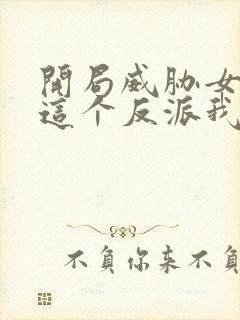 開局威胁女
這个反派我
不負你来不負